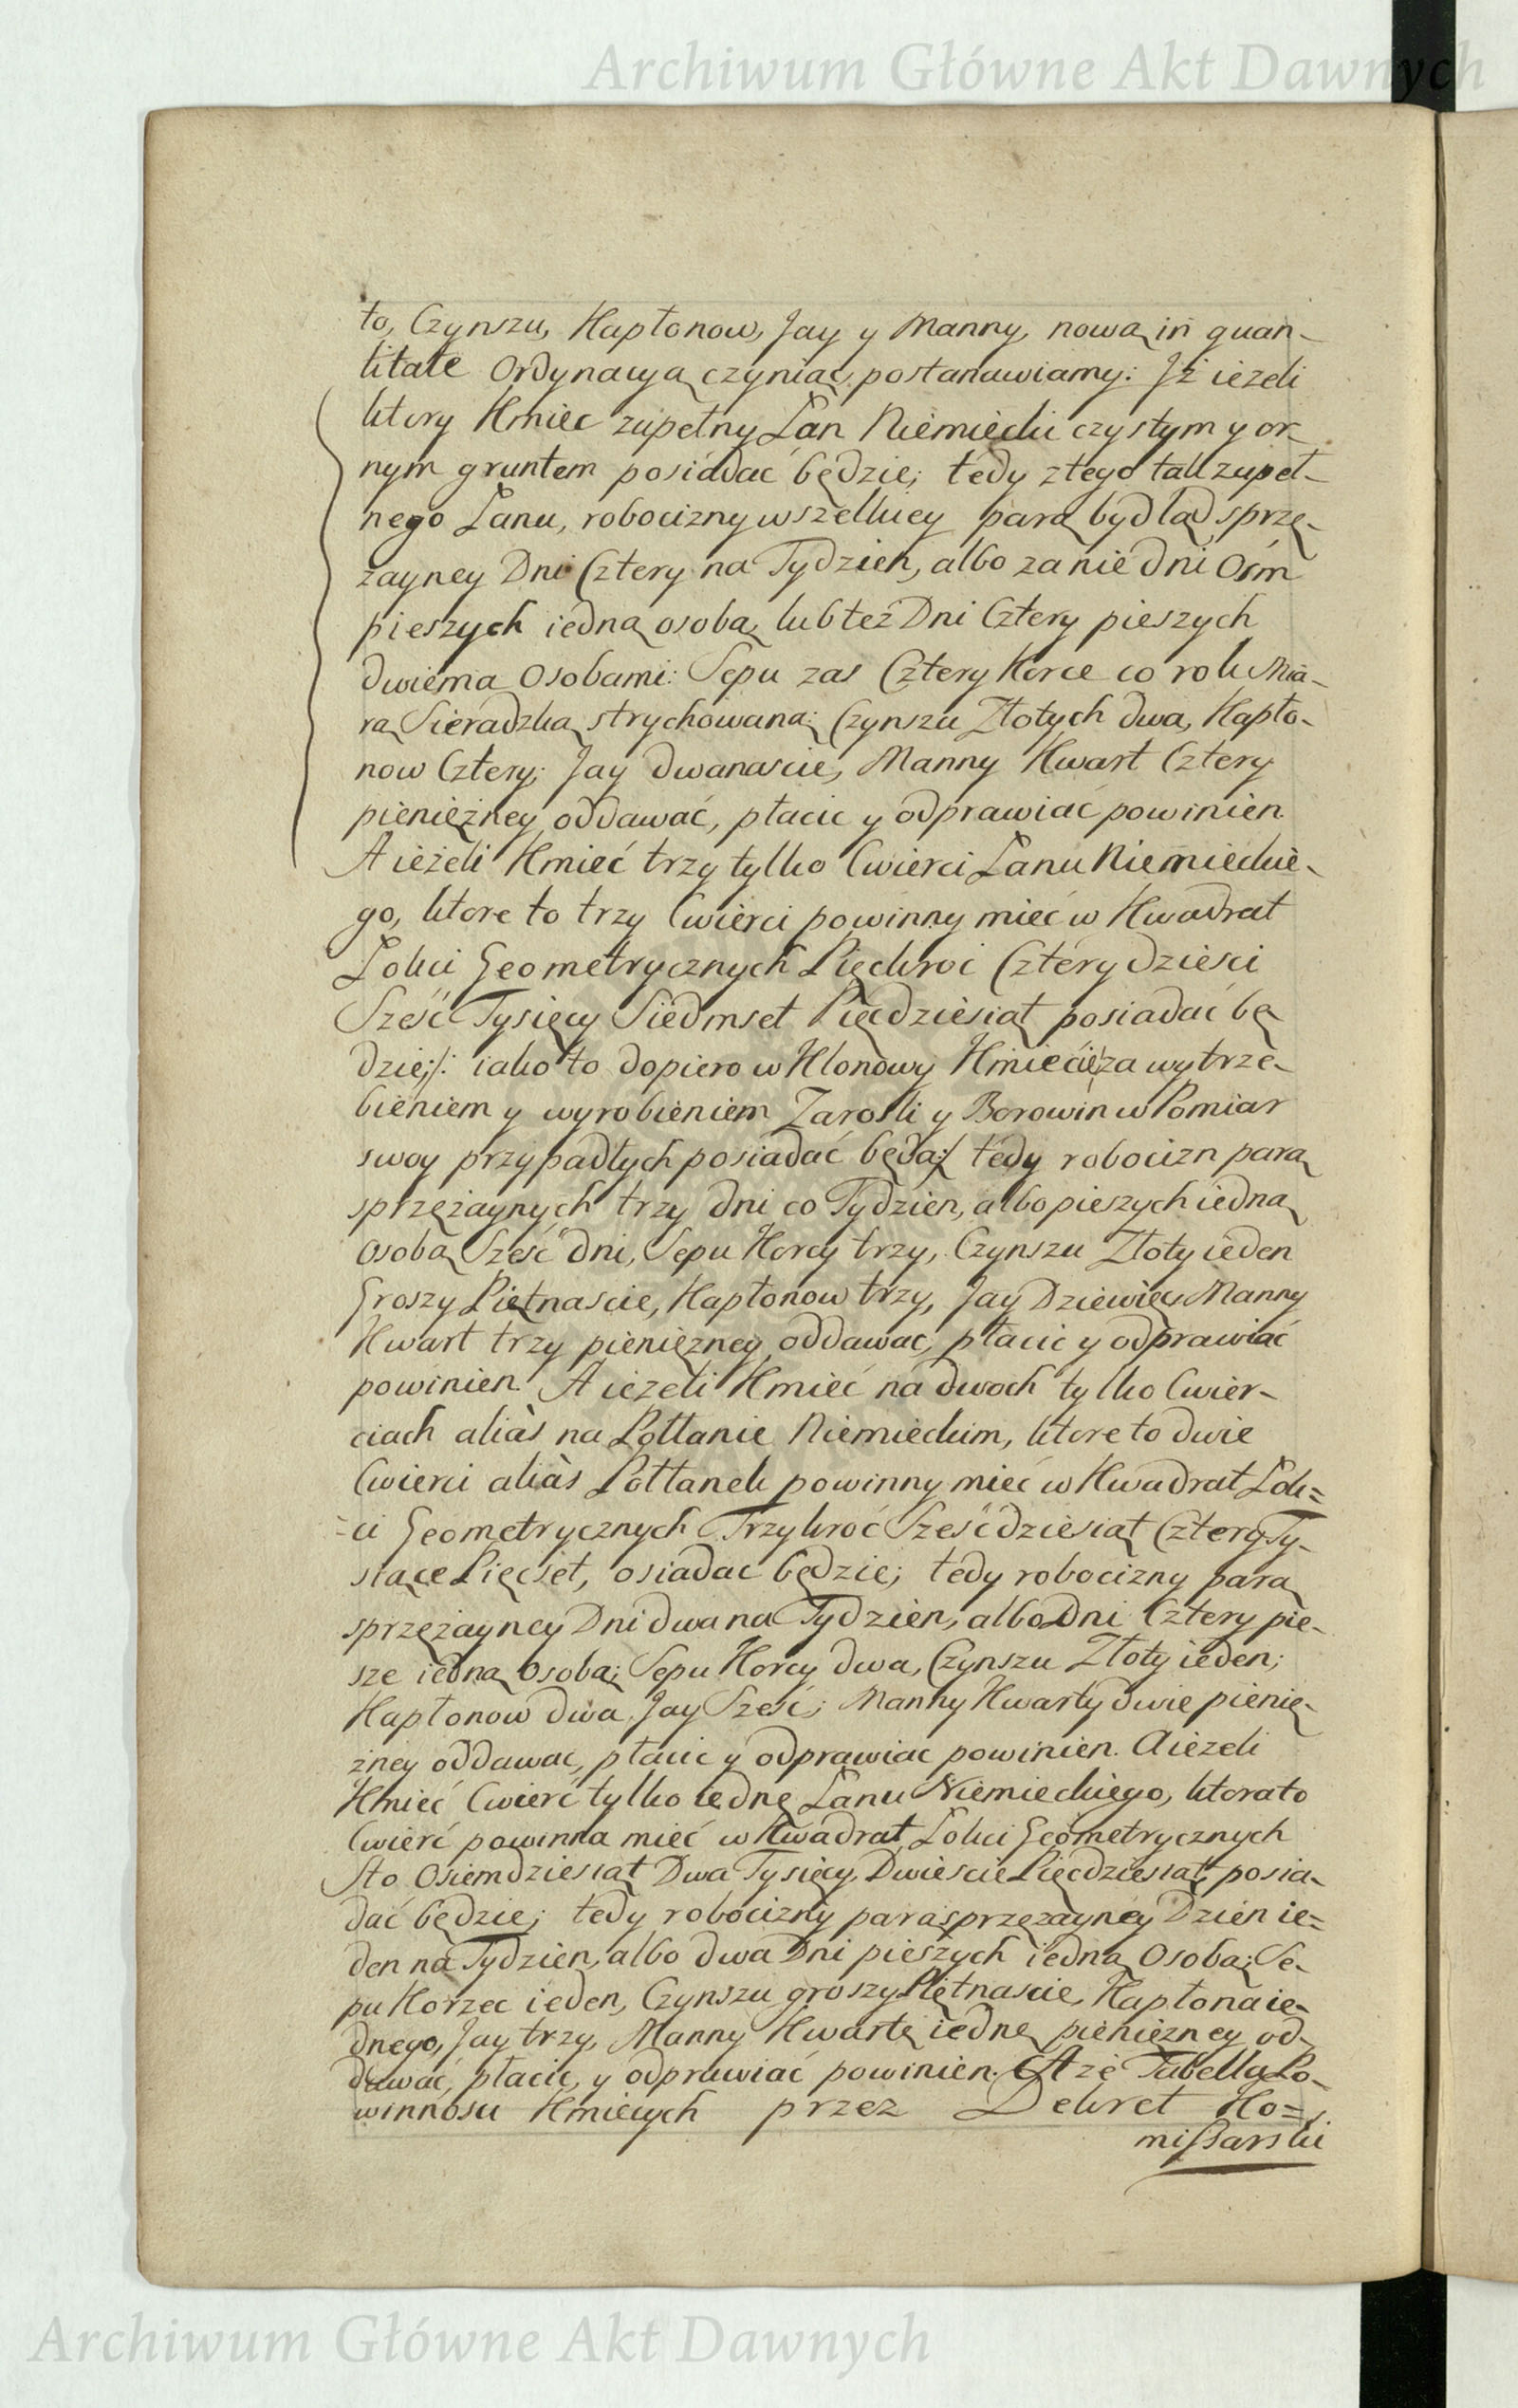 Archiwum Główne Akt Dawnych
to, Czynszu, Kapłonow, Jay y Manny, nową in quan-
titate Ordynacyą czyniąc, postanawiamy: Jż ieżeli
ktory Kmiec zupełny Łan Niemiecki czystym y or-
nym gruntem posiadać będzie; tedy z tego tak zupeł-
nego Łanu, robocizny wszelkiey parą bydłą sprzę-
żayney Dni Cztery na Tydzien, albo za nie dni Ośm
pieszych iedną osobą, lub też Dni Cztery pieszych
dwiema Osobami: Sepu zas Cztery Korce co rok Mia-
rą Sieradzką strychowaną; Czynszu Złotych dwa, Kapło-
now Cztery; Jay dwanascie, Manny Kwart Cztery
pieniężney oddawać, płacic y odprawiać powinien.
A ieżeli Kmieć trzy tylko Cwierci Łanu Niemieckie-
go, ktore to trzy Cwierci powinny mieć w Kwadrat
Łokci Geometrycznych Pięckroć Czterydziesci
Sześć Tysięcy Siedmset Pięcdziesiąt posiadać bę
dzie;/: iako to dopiero w Klonowy Kmiecie za wytrze-
bieniem y wyrobieniem Zarosli y Borowin w Pomiar
swoy przypadłych posiadać będą:/ tedy robocizn parą
sprzężaynych trzy dni co Tydzien, albo pieszych iedną
osobą Sześć dni, Sepu Korcy trzy, Czynszu Złoty ieden
Groszy Piętnascie, Kapłonow trzy, Jay Dziewięc Manny
Kwart trzy pieniężney oddawac, płacic y odprawiać
powinien. A ieżeli Kmieć na dwoch tylko Cwier-
ciach aliàs na Połłanie Niemieckim, ktore to dwie
Cwierci aliàs Połłanek powinny mieć w Kwadrat Łok=
=ci Geometrycznych Trzykroć Sześćdziesiąt Cztery Ty-
siące Pięcset, osiadac będzie; tedy robocizny parą
sprzężayney Dni dwa na Tydzien, albo Dni Cztery pie-
sze iedną Osobą; Sepu Korcy dwa, Czynszu Złoty ieden;
Kapłonow dwa, Jay Sześć; Manny Kwarty dwie pienię-
żney oddawac, płacic y odprawiac powinien. A ieżeli
Kmieć Cwierć tylko iednę Łanu Niemieckiego, ktora to
Cwierć powinna mieć w Kwadrat Łokci Geometrycznych
Sto Osiemdziesiąt Dwa Tysięcy Dwiescie Pięcdziesiąt, posia-
dać będzie; tedy robocizny parą sprzężayney Dzien ie=
den na Tydzien, albo dwa Dni pieszych iedną Osobą; Se-
pu Korzec ieden, Czynszu groszy Piętnascie, Kapłona ie-
dnego, Jay trzy, Manny Kwartę iednę pieniężney od-
dawać, płacic, y odprawiać powinien. A że Tabella Po-
winnosci Kmiecych przez Dekret Ko=
mißarski
Archiwum Główne Akt Dawnych